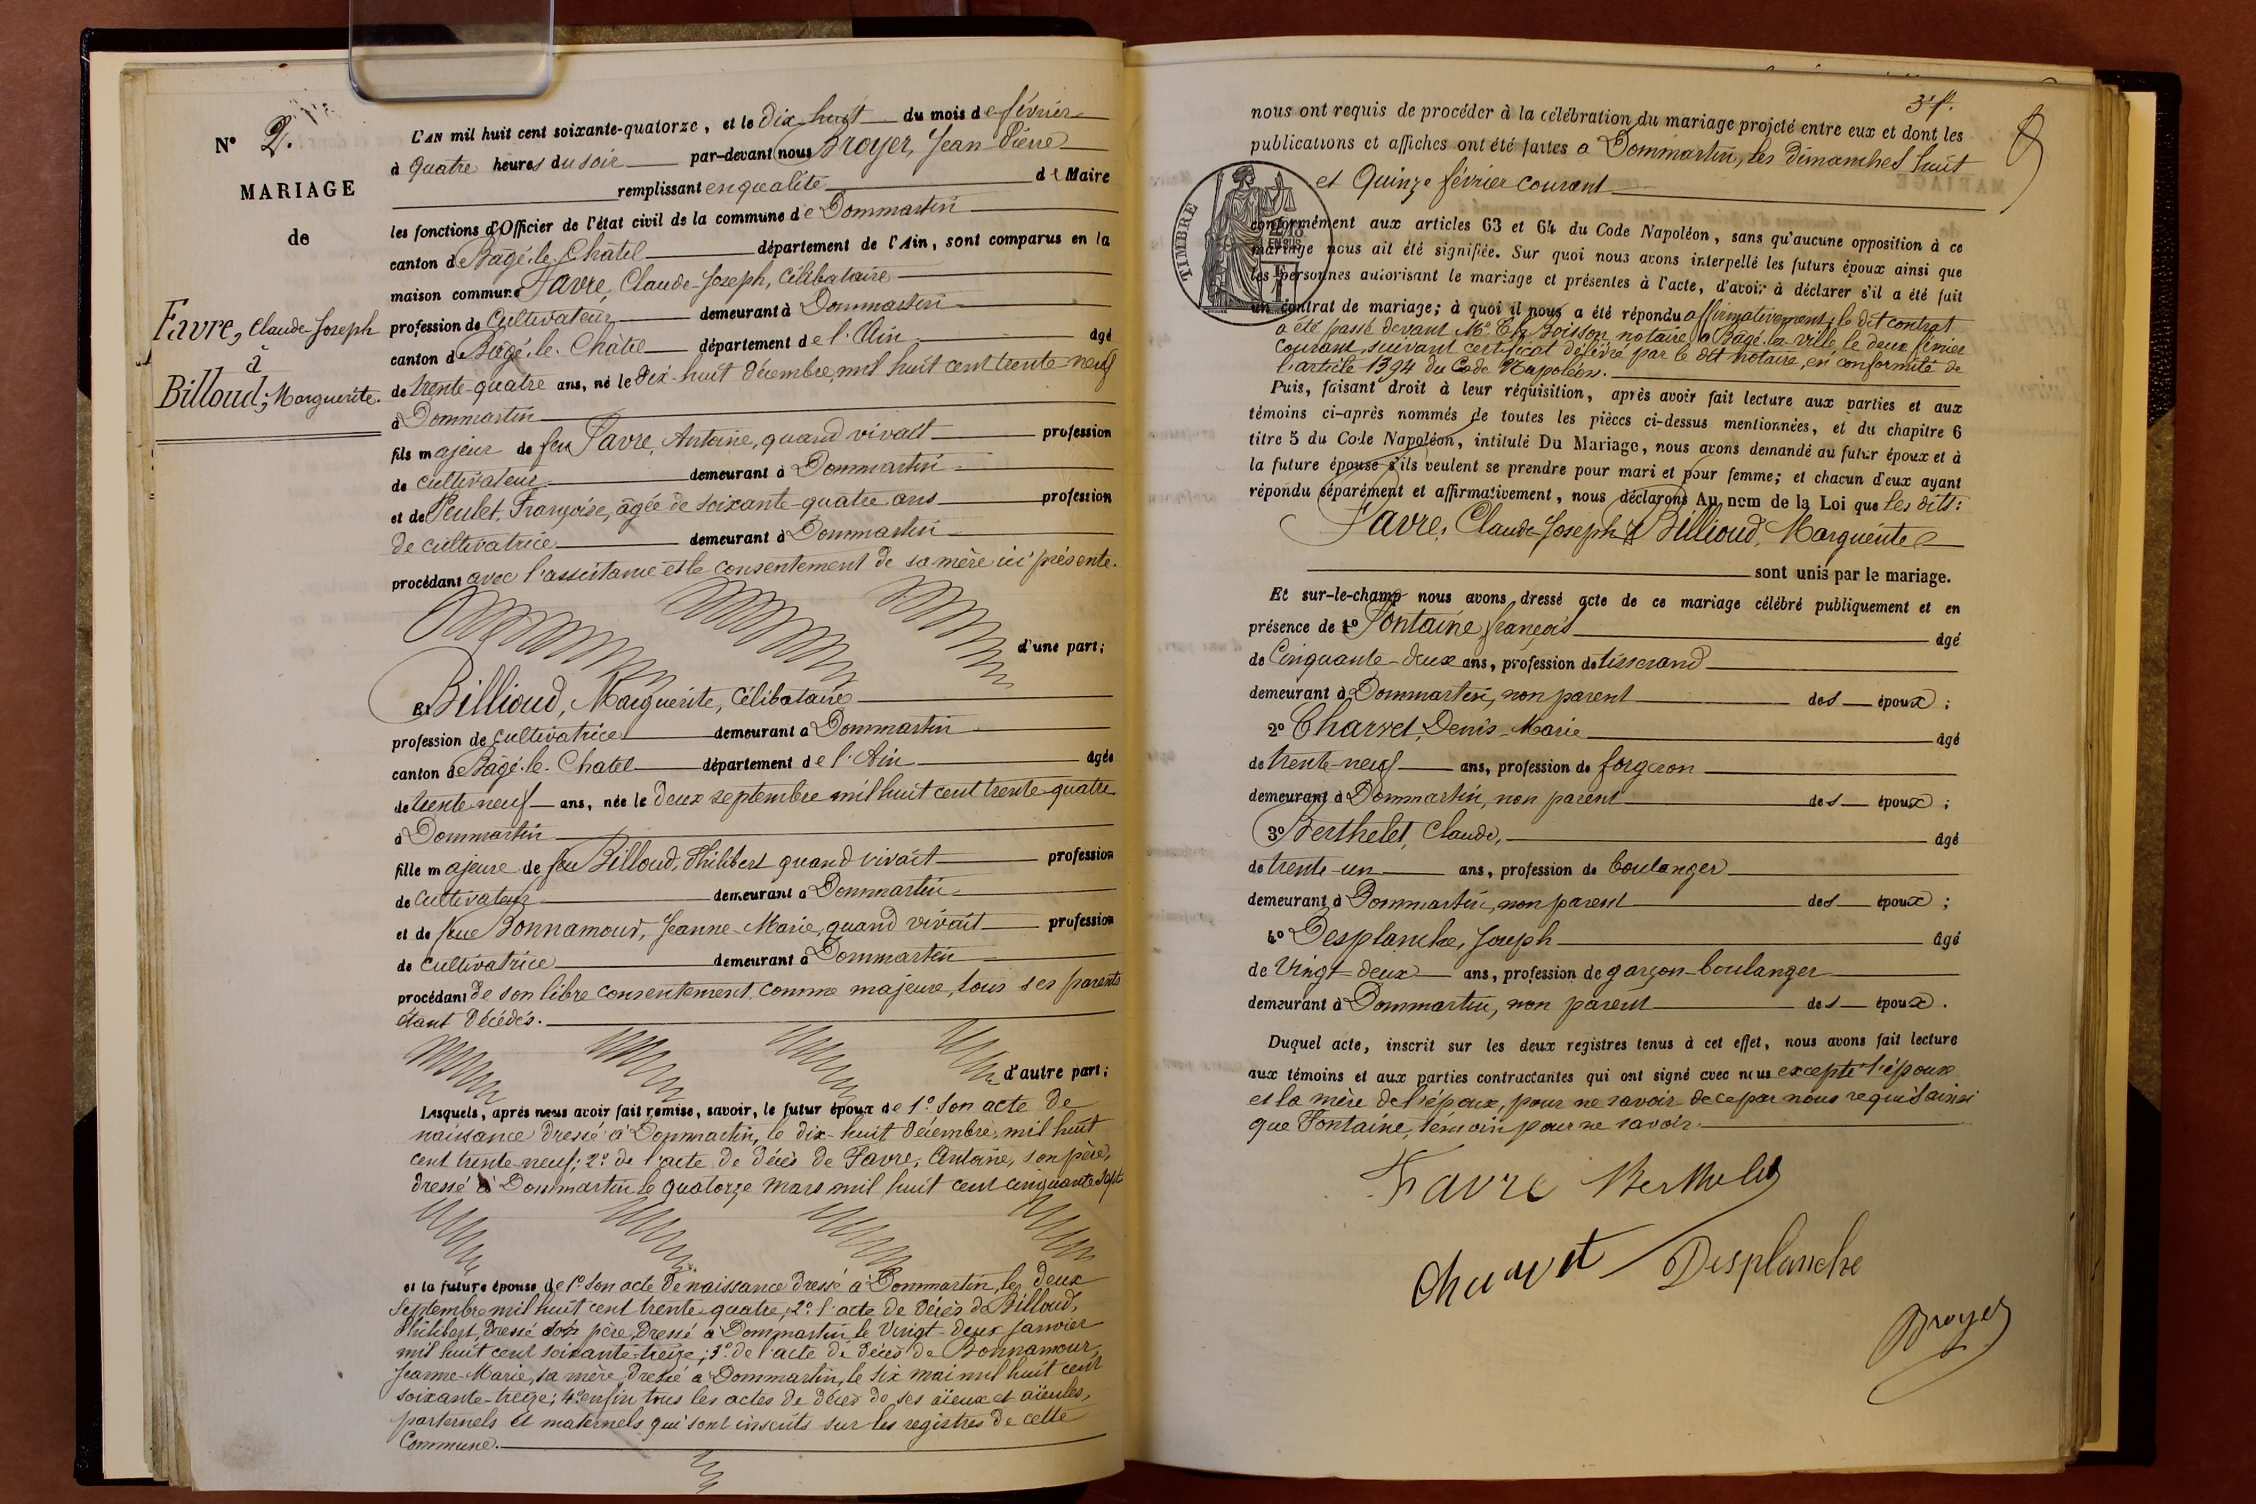 N° 2.
MARIAGE
de
Favre, Claude Joseph
à
Billoud, Marguerite.
L'AN mil huit cent soixante-quatorze, et le dix-huit du mois de février
à quatre heures du soir par-devant nous Broyer, Jean Pierre
remplissant en qualité de Maire
les fonctions d'Officier de l'état civil de la commune de Dommartin
canton de Bâgé-le-Châtel département de l'Ain, sont comparus en la
maison commune Favre, Claude-Joseph, célibataire
profession de Cultivateur demeurant à Dommartin
canton de Bâgé-le-Châtel département de l'Ain âgé
de trente-quatre ans, né le dix-huit décembre, mil huit cent trente-neuf
à Dommartin
fils majeur de feu Favre, Antoine, quand vivait profession
de cultivateur demeurant à Dommartin
et de Peulet, Françoise, âgée de soixante-quatre ans profession
de cultivatrice demeurant à Dommartin
procédant avec l'assistance et le consentement de sa mère ici présente.
d'une part;
Et Billioud, Marguerite, célibataire
profession de cultivatrice demeurant à Dommartin
canton de Bâgé-le-Chatel département de l'Ain âgée
de trente-neuf ans, née le deux septembre mil huit cent trente-quatre
à Dommartin
fille majeure de feu Billoud, Philibert quand vivait profession
de cultivateur demeurant à Dommartin
et de feue Bonnamour, Jeanne-Marie, quand vivait profession
de cultivatrice demeurant à Dommartin
procédant de son libre consentement, comme majeure, tous ses parents
étant décédés.
d'autre part;
Lesquels, après nous avoir fait remise, savoir, le futur époux de 1° son acte de
naissance dressé à Dommartin, le dix-huit décembre, mil huit
cent trente-neuf; 2° de l'acte de décès de Favre, Antoine, son père,
dressé à Dommartin le quatorze mars mil huit cent cinquante sept
et la future épouse de 1° son acte de naissance dressé à Dommartin, le deux
Septembre mil huit cent trente quatre; 2° l'acte de décès de Billoud,
Philibert, dressé son père, dressé à Dommartin le vingt-deux janvier
mil huit cent soixante-treize; 3° de l'acte de décès de Bonnamour,
Jeanne-Marie, sa mère, dressé à Dommartin, le six mai mil huit cent
soixante-treize; 4° enfin tous les actes de décès de ses aïeux et aïeules,
parternels et maternels qui sont inscrits sur les registres de cette
Commune.
3e f.
nous ont requis de procéder à la célébration du mariage projeté entre eux et dont les
publications et affiches ont été faites à Dommartin, les dimanches huit
et quinze février courant
TIMBRE
conformément aux articles 63 et 64 du Code Napoléon, sans qu'aucune opposition à ce
mariage nous ait été signifiée. Sur quoi nous avons interpellé les futurs époux ainsi que
les personnes autorisant le mariage et présentes à l'acte, d'avoir à déclarer s'il a été fait
un contrat de mariage; à quoi il nous a été répondu affirmativement; le dit contrat
a été passé devant Me Boisson notaire à Bâgé-la-ville le deux février
courant, suivant certificat délivré par le dit notaire, en conformité de
l'article 1394 du Code Napoléon.
Puis, faisant droit à leur réquisition, après avoir fait lecture aux parties et aux
témoins ci-après nommés de toutes les pièces ci-dessus mentionnées, et du chapitre 6
titre 5 du Code Napoléon, intitulé Du Mariage, nous avons demandé au futur époux et à
la future épouse s'ils veulent se prendre pour mari et pour femme; et chacun d'eux ayant
répondu séparément et affirmativement, nous déclarons Au nom de la Loi que les dits:
Favre, Claude-Joseph & Billioud, Marguerite
sont unis par le mariage.
Et sur-le-champ nous avons dressé acte de ce mariage célébré publiquement et en
présence de 1° Fontaine françois âgé
de Cinquante-deux ans, profession de tisserand
demeurant à Dommartin, non parent des époux;
2° Charvet, Denis-Marie âgé
de trente-neuf ans, profession de forgeron
demeurant à Dommartin, non parent des époux;
3° Berthelet, Claude, âgé
de trente-un ans, profession de boulanger
demeurant à Dommartin, non parent des époux;
4° Desplanche, Joseph âgé
de vingt-deux ans, profession de garçon-boulanger
demeurant à Dommartin, non parent des époux.
Duquel acte, inscrit sur les deux registres tenus à cet effet, nous avons fait lecture
aux témoins et aux parties contractantes qui ont signé avec nous excepté l'épouse
et la mère de l'époux, pour ne savoir de ce par nous requis ainsi
que Fontaine, témoin pour ne savoir.
Favre Berthelet
Charvet Desplanche
Broyer